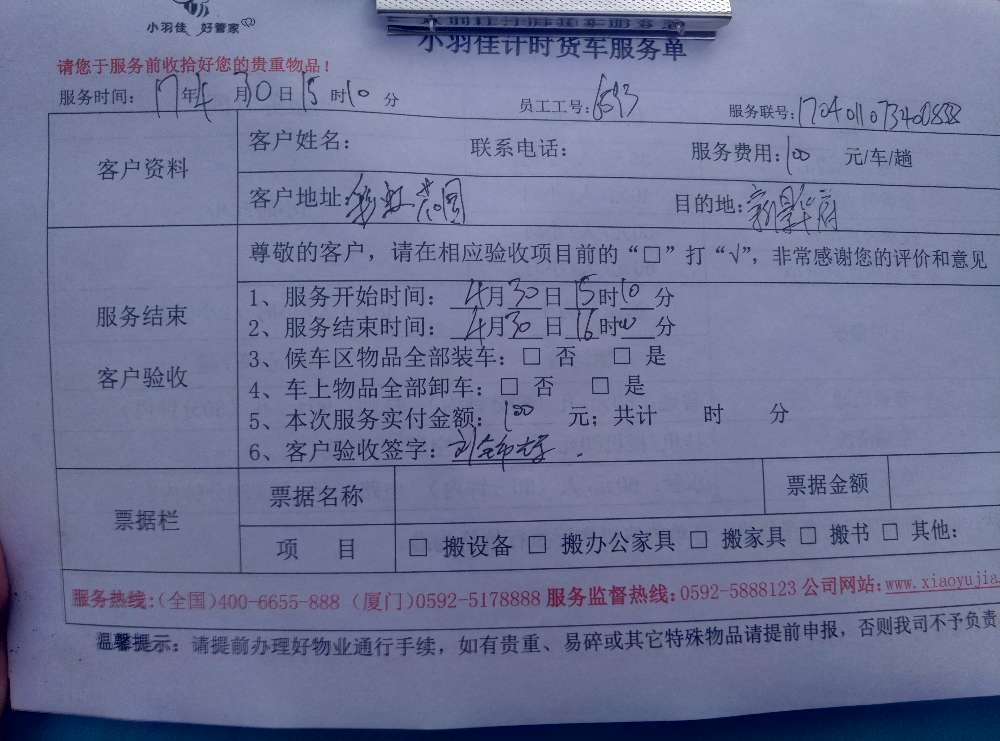 小羽佳 好管家
小羽佳计时货车服务单
请您于服务前收拾好您的贵重物品！
服务时间： 17年4月30日15时10分 员工工号： 服务联号：
客户资料
客户姓名： 联系电话： 服务费用：100 元/车/趟
客户地址： 花园 目的地：新景华府
服务结束
客户验收
尊敬的客户，请在相应验收项目前的“□”打“√”，非常感谢您的评价和意见
1、服务开始时间： 4月30日15时10分
2、服务结束时间： 4月30日16时00分
3、候车区物品全部装车：□ 否 □ 是
4、车上物品全部卸车：□ 否 □ 是
5、本次服务实付金额：100 元；共计 时 分
6、客户验收签字：
票据栏
票据名称 票据金额
项 目 □ 搬设备 □ 搬办公家具 □ 搬家具 □ 搬书 □ 其他：
服务热线：(全国)400-6655-888 (厦门)0592-5178888 服务监督热线：0592-5888123 公司网站：www.xiaoyujia
温馨提示：请提前办理好物业通行手续，如有贵重、易碎或其它特殊物品请提前申报，否则我司不予负责